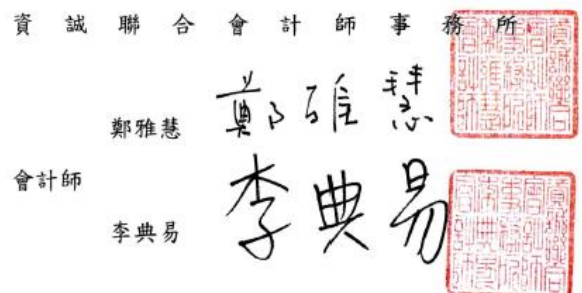 資誠聯合會計師事務所
鄭雅慧 鄭雅慧
會計師
李典易 李典易